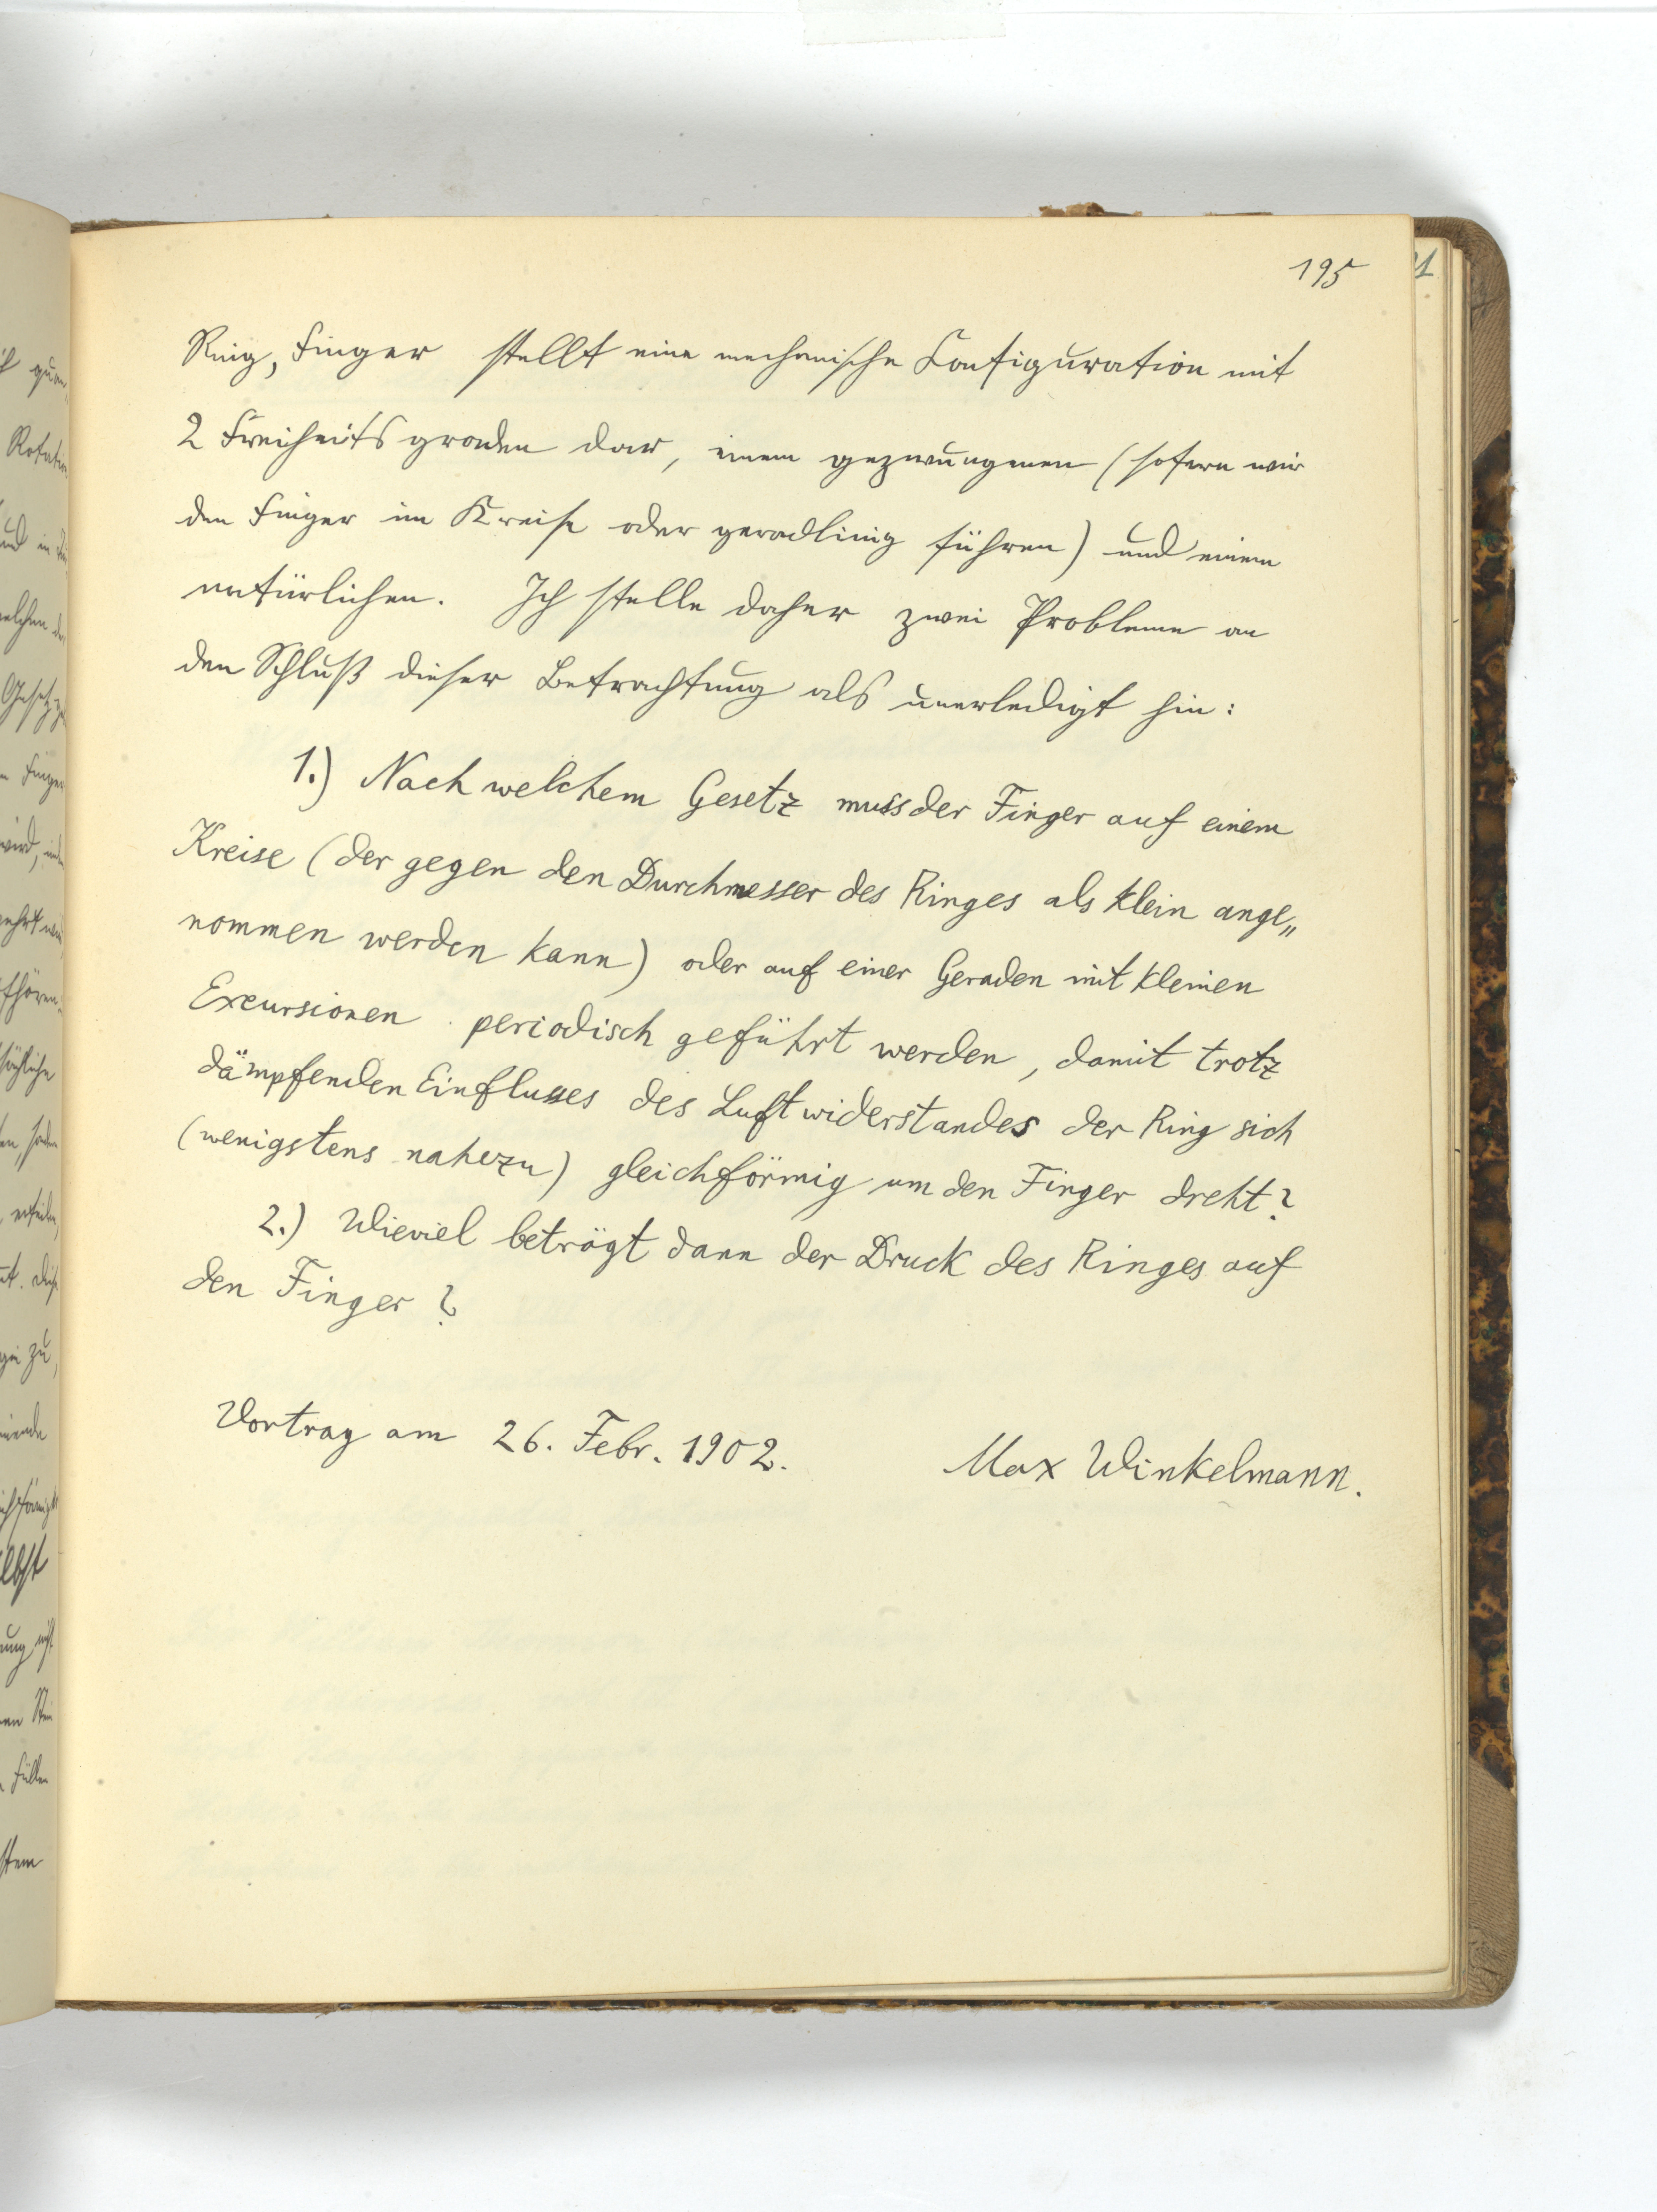 195
Ring, Finger stellt eine mechanische Konfiguration mit
2 Freiheitsgraden dar, einem gezwungenen (sofern wir
den Finger im Kreise oder geradlinig führen) und einem
natürlichen. Ich stelle daher zwei Probleme an
den Schluß dieser Betrachtung als unerledigt hin:
1.) Nach welchem Gesetz muss der Finger auf einem
Kreise (der gegen den Durchmesser des Ringes als klein ange„
nommen werden kann) oder auf einer Geraden mit kleinen
Excursionen periodisch geführt werden, damit trotz
dämpfenden Einflusses des Luftwiderstandes der Ring sich
(wenigstens nahezu) gleichförmig um den Finger dreht?
2.) Wieviel beträgt dann der Druck des Ringes auf
den Finger?
Vortrag am 26. Febr. 1902.
Max Winkelmann.